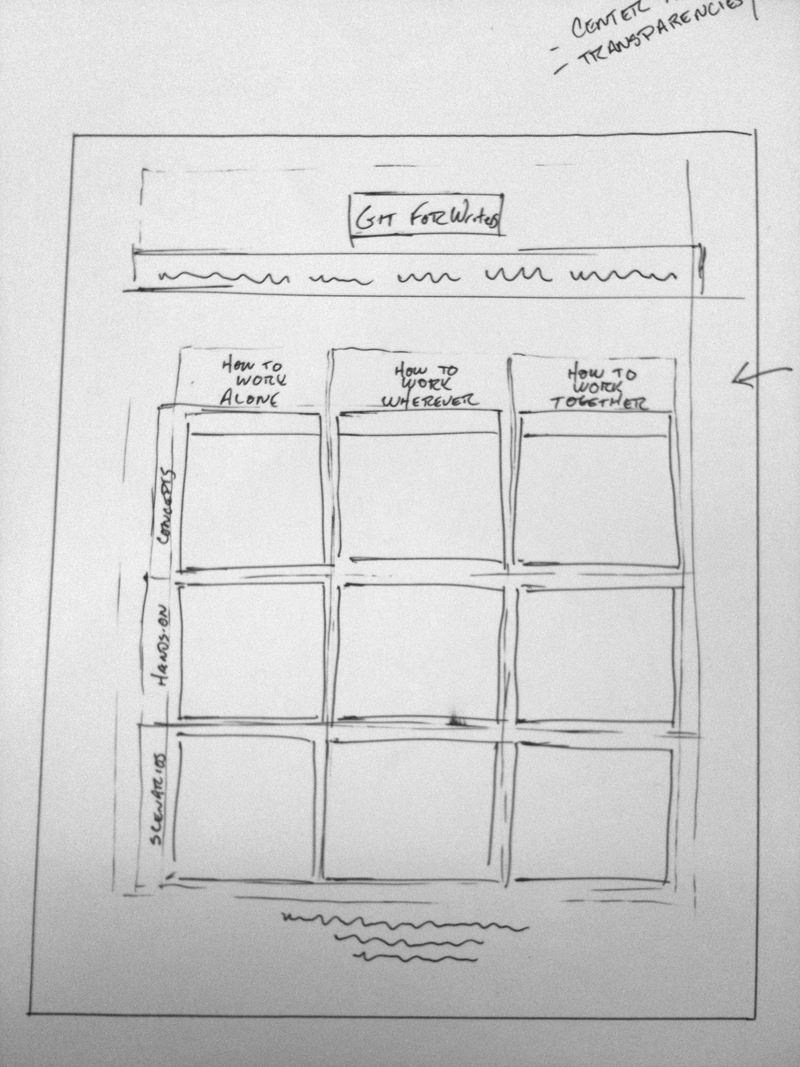 - CENTER
- TRANSPARENCIES
GIT FOR Writers
HOW TO
WORK
ALONE
HOW TO
WORK
WHEREVER
HOW TO
WORK
TOGETHER
CONCEPTS
HANDS-ON
SCENARIOS